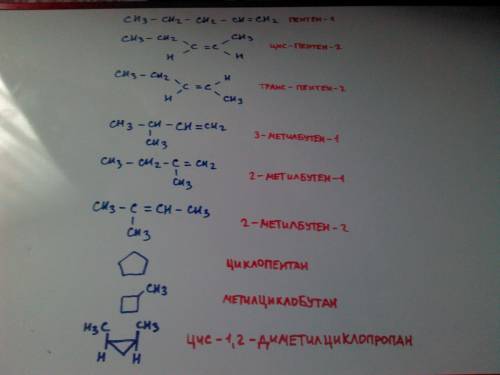 CH₃–CH₂–CH₂–CH=CH₂ ПЕНТЕН-1
CH₃–CH₂ CH₃
C=C ЦИС-ПЕНТЕН-2
H H
CH₃–CH₂ H
C=C ТРАНС-ПЕНТЕН-2
H CH₃
CH₃–CH–CH=CH₂
CH₃ 3-МЕТИЛБУТЕН-1
CH₃–CH₂–C=CH₂
CH₃ 2-МЕТИЛБУТЕН-1
CH₃–C=CH–CH₃
CH₃ 2-МЕТИЛБУТЕН-2
ЦИКЛОПЕНТАН
CH₃
МЕТИЛЦИКЛОБУТАН
H₃C CH₃
ЦИС-1,2-ДИМЕТИЛЦИКЛОПРОПАН
H H